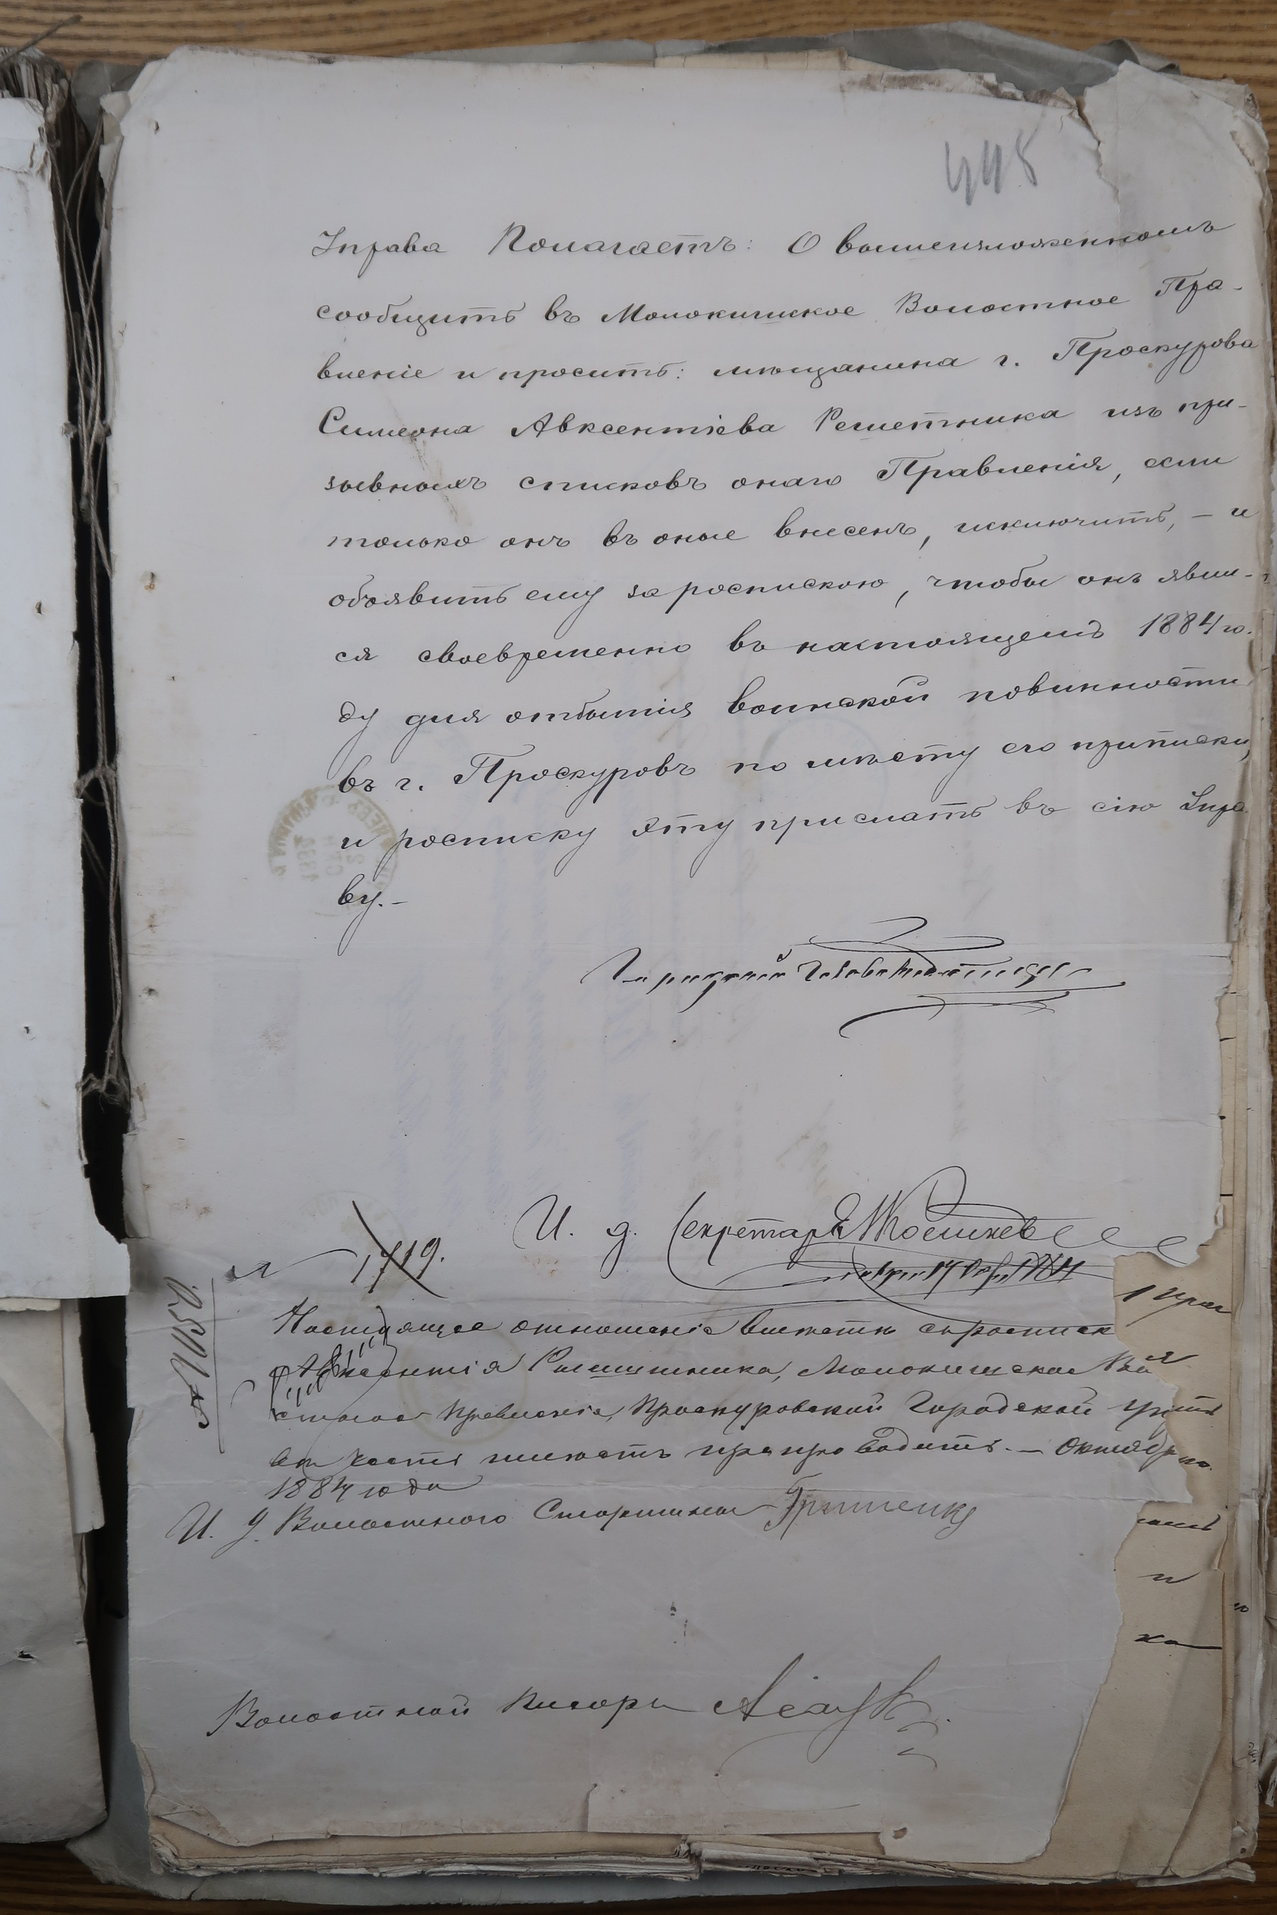 448
Управа Полагаетъ: О вышеизложенномъ
сообщить въ Молокишское Волостное Пра-
вленіе и просить: мѣщанина г. Проскурова
Симеона Авксентіева Решетника изъ при-
зывныхъ списковъ онаго Правленія, если
только онъ въ оные внесенъ, исключить, – и
объявить ему за роспискою, чтобы онъ явил-
ся своевременно въ настоящемъ 1884 го-
ду для отбытія воинской повинности
въ г. Проскуровъ по мѣсту его приписки,
и росписку эту прислать въ сію Упра
ву. –
Городской Голова
И. д. Секретаря
1719.
Настоящее отношеніе вмѣстѣ съ росписк
Авксентія Решетника, Молокишское Во
стное Правленіе, Проскуровской Городской Упр
честь имѣетъ препроводить. – Октября
1884 года
И. д. Волостного Старшины Гриценку
Волостной Писарь